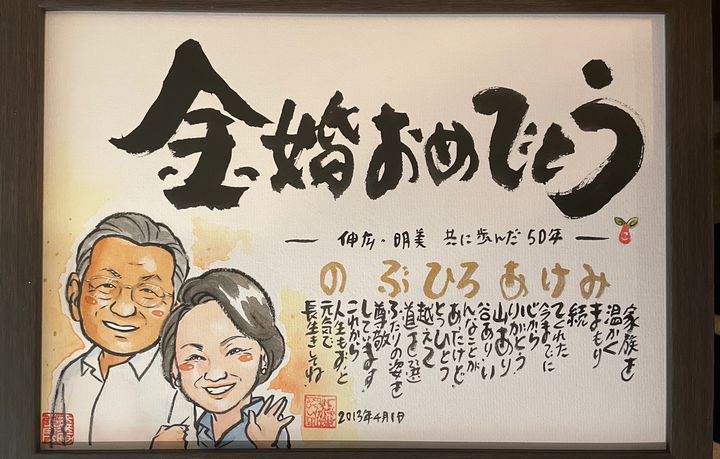 金婚おめでとう
伸広・明美 共に歩んだ50年
のぶひろあけみ
家族を
温かく
まもり
続
てくれた
今までに
心から
りがとう
山あり
谷ありい
んなことが
あったけど
とつひとつ
越えて
道を選
ふたりの姿を
尊敬
しています
これから
人生もずっと
元気で
長生きしてね!
2013年4月1日